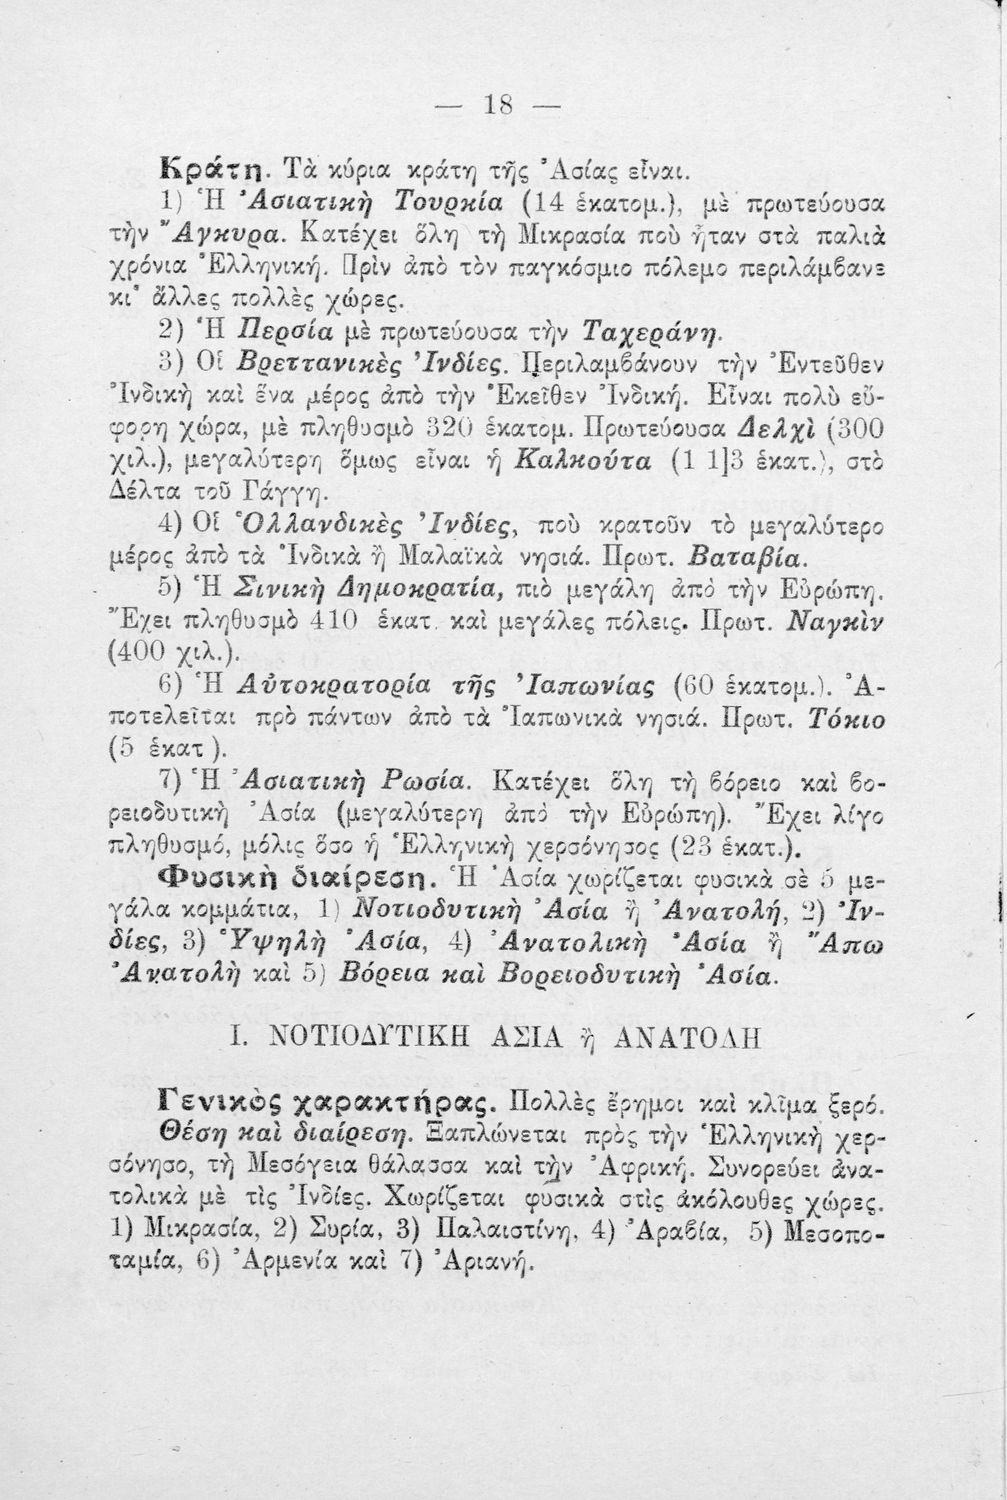 — 18 —
Κράτη. Τὰ κύρια κράτη τῆς Ἀσίας εἶναι.
1) Ἡ Ἀσιατικὴ Τουρκία (14 ἑκατομ.), μὲ πρωτεύουσα
τὴν Ἄγκυρα. Κατέχει ὅλη τὴ Μικρασία ποὺ ἦταν στὰ παλιὰ
χρόνια Ἑλληνική. Πρὶν ἀπὸ τὸν παγκόσμιο πόλεμο περιλάμβανε
κι' ἄλλες πολλὲς χῶρες.
2) Ἡ Περσία μὲ πρωτεύουσα τὴν Ταχεράνη.
3) Οἱ Βρεττανικὲς Ἰνδίες. Περιλαμβάνουν τὴν Ἐντεῦθεν
Ἰνδικὴ καὶ ἕνα μέρος ἀπὸ τὴν Ἐκεῖθεν Ἰνδική. Εἶναι πολὺ εὔ-
φορη χώρα, μὲ πληθυσμὸ 320 ἑκατομ. Πρωτεύουσα Δελχὶ (300
χιλ.), μεγαλύτερη ὅμως εἶναι ἡ Καλκούτα (1 1]3 ἑκατ.), στὸ
Δέλτα τοῦ Γάγγη.
4) Οἱ Ὁλλανδικὲς Ἰνδίες, ποὺ κρατοῦν τὸ μεγαλύτερο
μέρος ἀπὸ τὰ Ἰνδικὰ ἢ Μαλαϊκὰ νησιά. Πρωτ. Βαταβία.
5) Ἡ Σινικὴ Δημοκρατία, πιὸ μεγάλη ἀπὸ τὴν Εὐρώπη.
Ἔχει πληθυσμὸ 410 ἑκατ. καὶ μεγάλες πόλεις. Πρωτ. Ναγκὶν
(400 χιλ.).
6) Ἡ Αὐτοκρατορία τῆς Ἰαπωνίας (60 ἑκατομ.). Ἀ-
ποτελεῖται πρὸ πάντων ἀπὸ τὰ Ἰαπωνικὰ νησιά. Πρωτ. Τόκιο
(5 ἑκατ ).
7) Ἡ Ἀσιατικὴ Ρωσία. Κατέχει ὅλη τὴ βόρειο καὶ βο-
ρειοδυτικὴ Ἀσία (μεγαλύτερη ἀπὸ τὴν Εὐρώπη). Ἔχει λίγο
πληθυσμό, μόλις ὅσο ἡ Ἑλληνικὴ χερσόνησος (23 ἑκατ.).
Φυσικὴ διαίρεση. Ἡ Ἀσία χωρίζεται φυσικὰ σὲ 5 με-
γάλα κομμάτια, 1) Νοτιοδυτικὴ Ἀσία ἢ Ἀνατολή, 2) Ἰν-
δίες, 3) Ὑψηλὴ Ἀσία, 4) Ἀνατολικὴ Ἀσία ἢ Ἄπω
Ἀνατολὴ καὶ 5) Βόρεια καὶ Βορειοδυτικὴ Ἀσία.
I. ΝΟΤΙΟΔΥΤΙΚΗ ΑΣΙΑ ἢ ΑΝΑΤΟΛΗ
Γενικὸς χαρακτήρας. Πολλὲς ἔρημοι καὶ κλῖμα ξερό.
Θέση καὶ διαίρεση. Ξαπλώνεται πρὸς τὴν Ἑλληνικὴ χερ-
σόνησο, τὴ Μεσόγεια θάλασσα καὶ τὴν Ἀφρική. Συνορεύει ἀνα-
τολικὰ μὲ τὶς Ἰνδίες. Χωρίζεται φυσικὰ στὶς ἀκόλουθες χῶρες.
1) Μικρασία, 2) Συρία, 3) Παλαιστίνη, 4) Ἀραβία, 5) Μεσοπο-
ταμία, 6) Ἀρμενία καὶ 7) Ἀριανή.